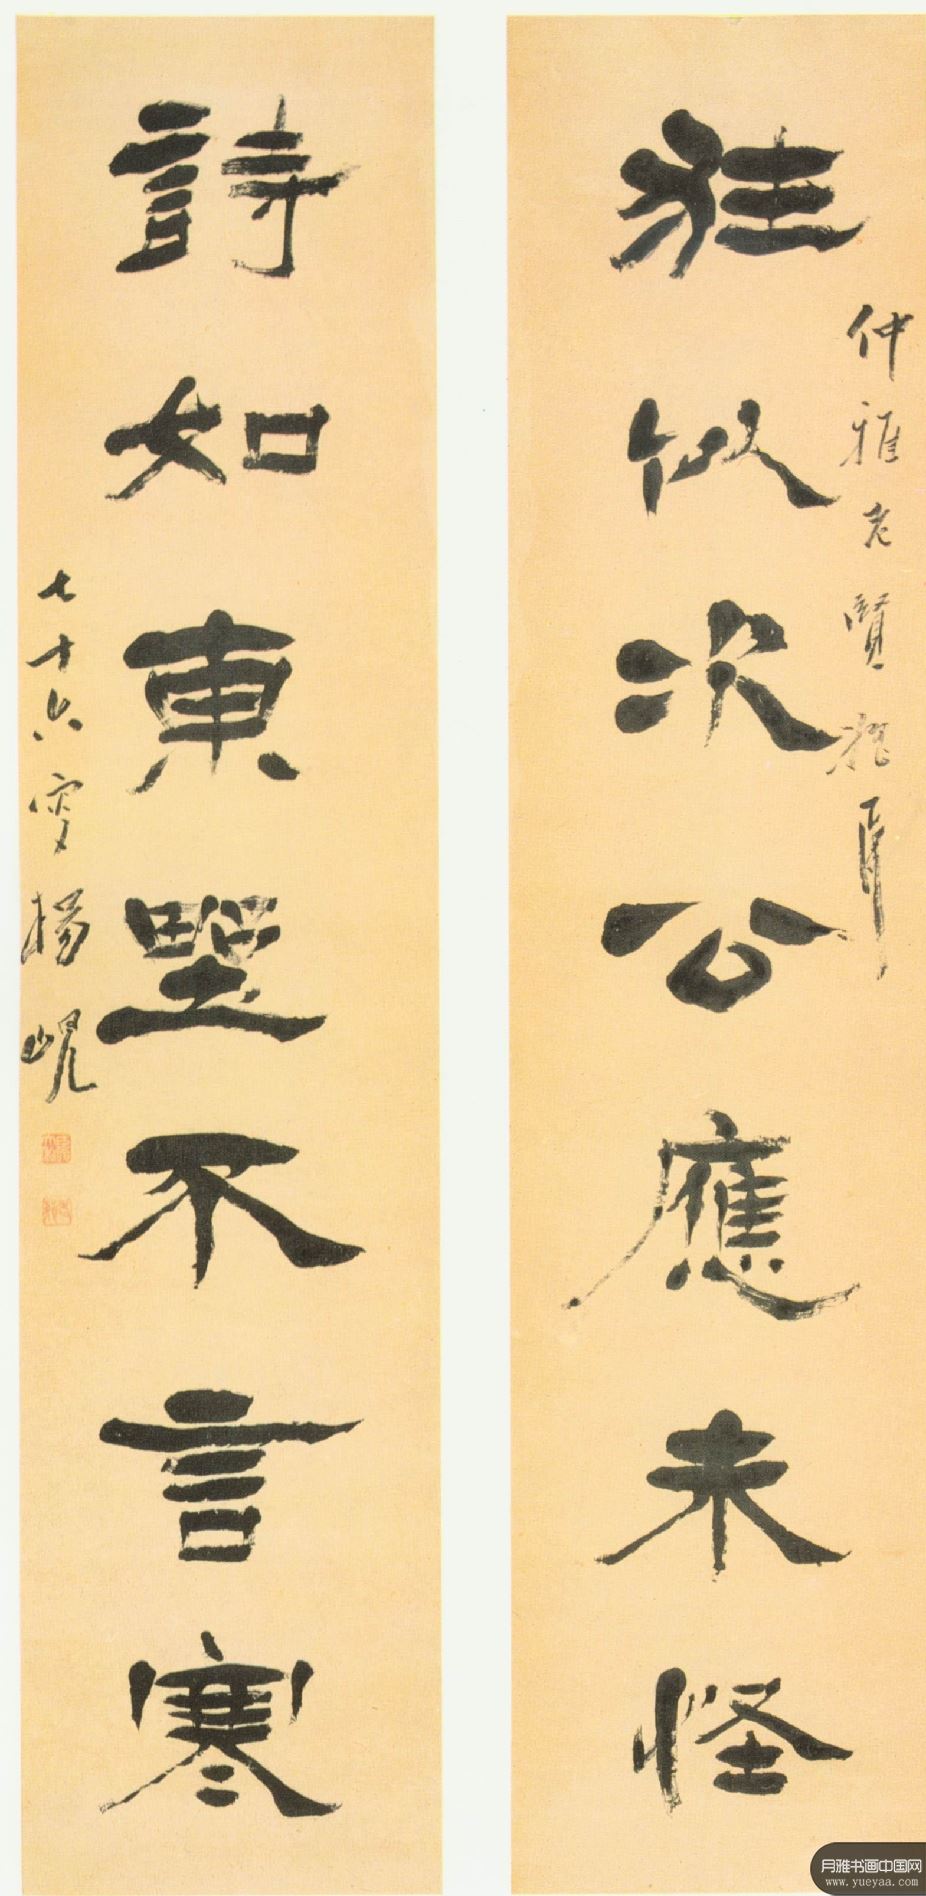 狂似次公應未怪
仲雅老賢
詩如東埜不言寒
七十六叟楊峴
月雅书画中国网
www.yueyaa.com